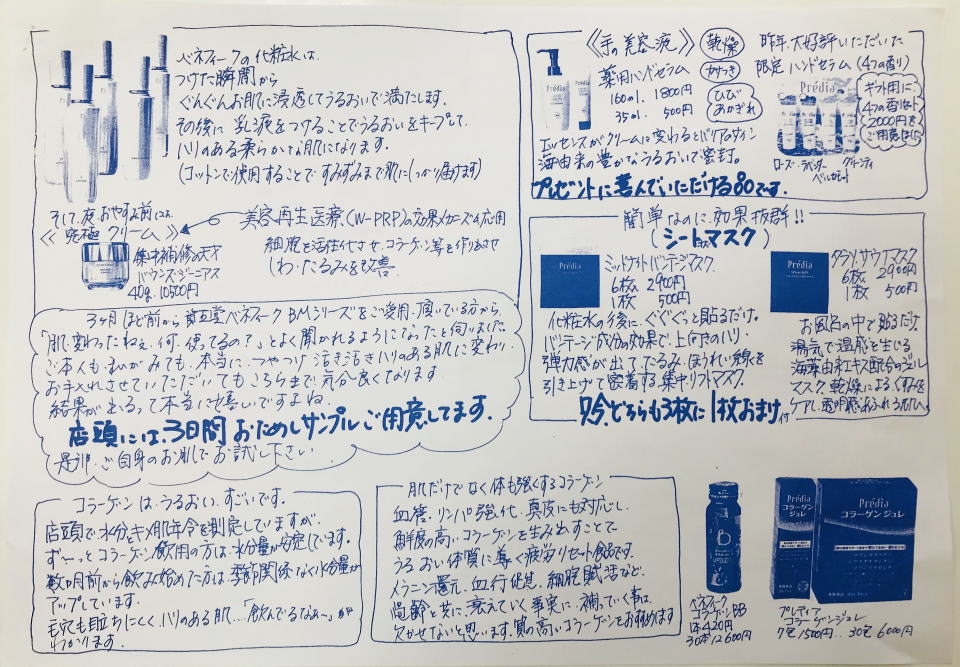 ベネフィークの化粧水は、
つけた瞬間から
ぐんぐんお肌に浸透してうるおいで満たします。
その後に乳液をつけることでうるおいをキープして、
ハリのある柔らかなお肌になります。
(コットンで使用することですみずみまで肌にしっかり届けます)
そして、夜、おやすみ前には、
《究極クリーム》
集中補修の天才
バウンス・ジーニアス
40g. 10500円
美容再生医療(W-PRP)の効果メカニズム応用
細胞を活性化させ、コラーゲン等を作りださせ
しわ・たるみを改善
3ヶ月ほど前から資生堂ベネフィークBMシリーズをご愛用頂いている方から、
「肌変わったねぇ。何使ってるの?」とよく聞かれるようになったと伺いました。
ご本人も、わがみても、本当に、つやつや活き活きハリのある肌に変わり
お手入れさせていただいてもこちらまで気分良くなります
結果が出るって本当に嬉しいですよね。
店頭には、3日間おためしサンプルご用意してます。
是非、ご自身のお肌でお試し下さい
《手の美容液》
乾燥
カサつき
ひび
あかぎれ
薬用ハンドセラム
160ml. 1800円
35ml. 500円
エッセンスがクリームに変わるとバリアのサイン
海由来の豊かなうるおいで密封。
プレゼントに喜んでいただける80です。
昨年、大好評いただいた
限定ハンドセラム(4つの香り)
Prédia
ギフト用に、
4つの香セット
2000円を
ご用意
ローズ・ラベンダー グリーンティ
ベルガモット
簡単なのに、効果抜群!!
(シートマスク)
Prédia
ミッドナイトバンテージマスク
6枚 2900円
1枚 500円
化粧水の後に、ぐぐぐっと貼るだけ。
バンテージ成分の効果で、上向きのハリ・
弾力感が出て、たるみ、ほうれい線を
引き上げて密着する、集中リフトマスク。
Prédia
タラソ.サウナマスク
6枚 2900円
1枚 500円
お風呂の中で貼るだけ。
湯気で温感を生じる
海藻由来エキス配合のジェル
マスク、乾燥によるくすみを
ケアし、透明感あふれるお肌へ
今、どちらも3枚に1枚おまけ付
コラーゲンは、うるおい、すごいです。
店頭で、水分、キメ、肌年令を測定していますが、
ず〜っとコラーゲン飲用の方は、水分量が安定しています。
数ヶ月前から飲み始めた方は、季節関係なく水分量が
アップしています。
毛穴も目立ちにくく、ハリのある肌…「飲んでるなぁ〜」が
わかります。
肌だけでなく体も強くするコラーゲン
血管、リンパ強化、真皮にも対応し、
鮮度の高いコラーゲンを生み出すことで
うるおい体質に導く疲労リセット食品です。
メラニン還元、血行促進、細胞賦活など、
齢と共に衰えていく事実に、補っていく事は、
欠かせないと思います。質の高いコラーゲンをお勧めます
B
ベネフィーク
コラーゲンBB
1本420円
30本12600円
Prédia
コラーゲン
ジュレ
Prédia
コラーゲン ジュレ
プレディア
コラーゲンジュレ
7包1500円… 30包6000円